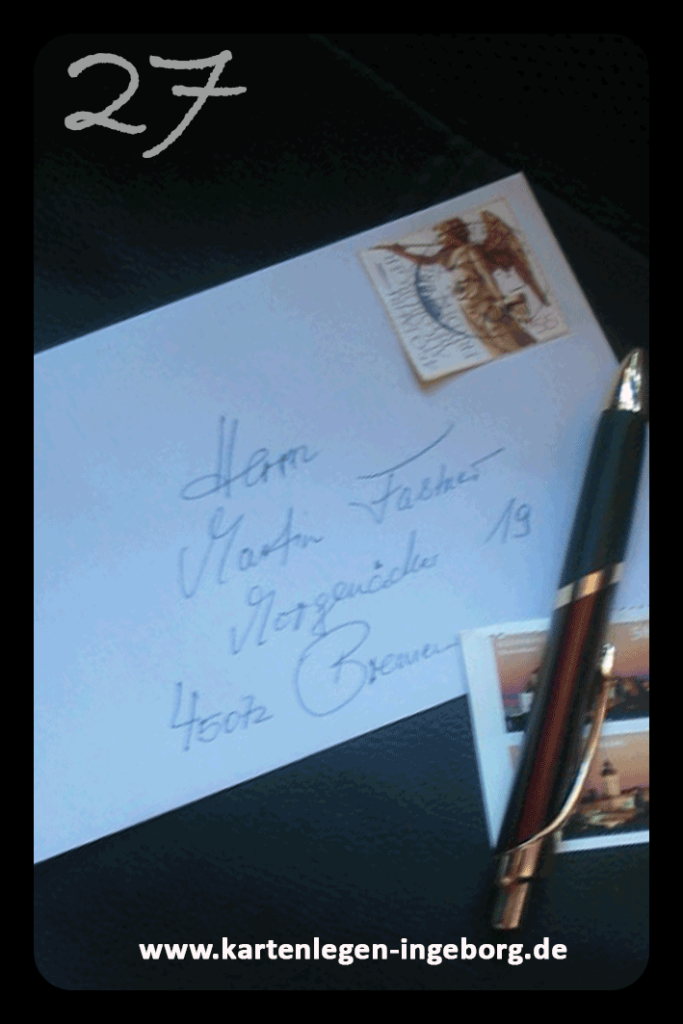 27
Herrn
Martin Fastner
Morgenäcker 19
45072 Bremen
www.kartenlegen-ingeborg.de